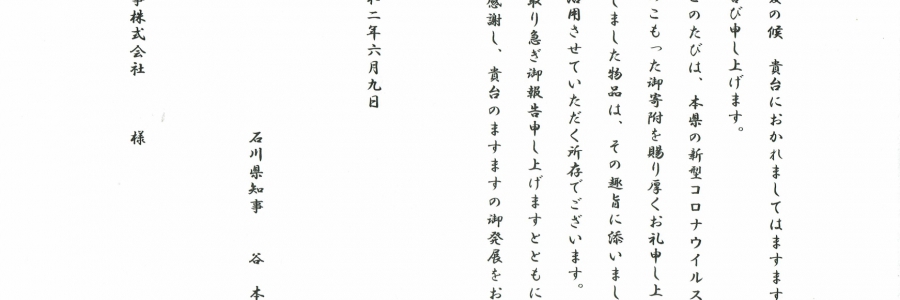 の候　貴台におかれましてはますます
び申し上げます。
のたびは、本県の新型コロナウイルス
こもった御寄附を賜り厚くお礼申し上
しました物品は、その趣旨に添いまし
活用させていただく所存でございます。
取り急ぎ御報告申し上げますとともに
感謝し、貴台のますますの御発展をお
二年六月九日
石川県知事　谷　本
株式会社　　様